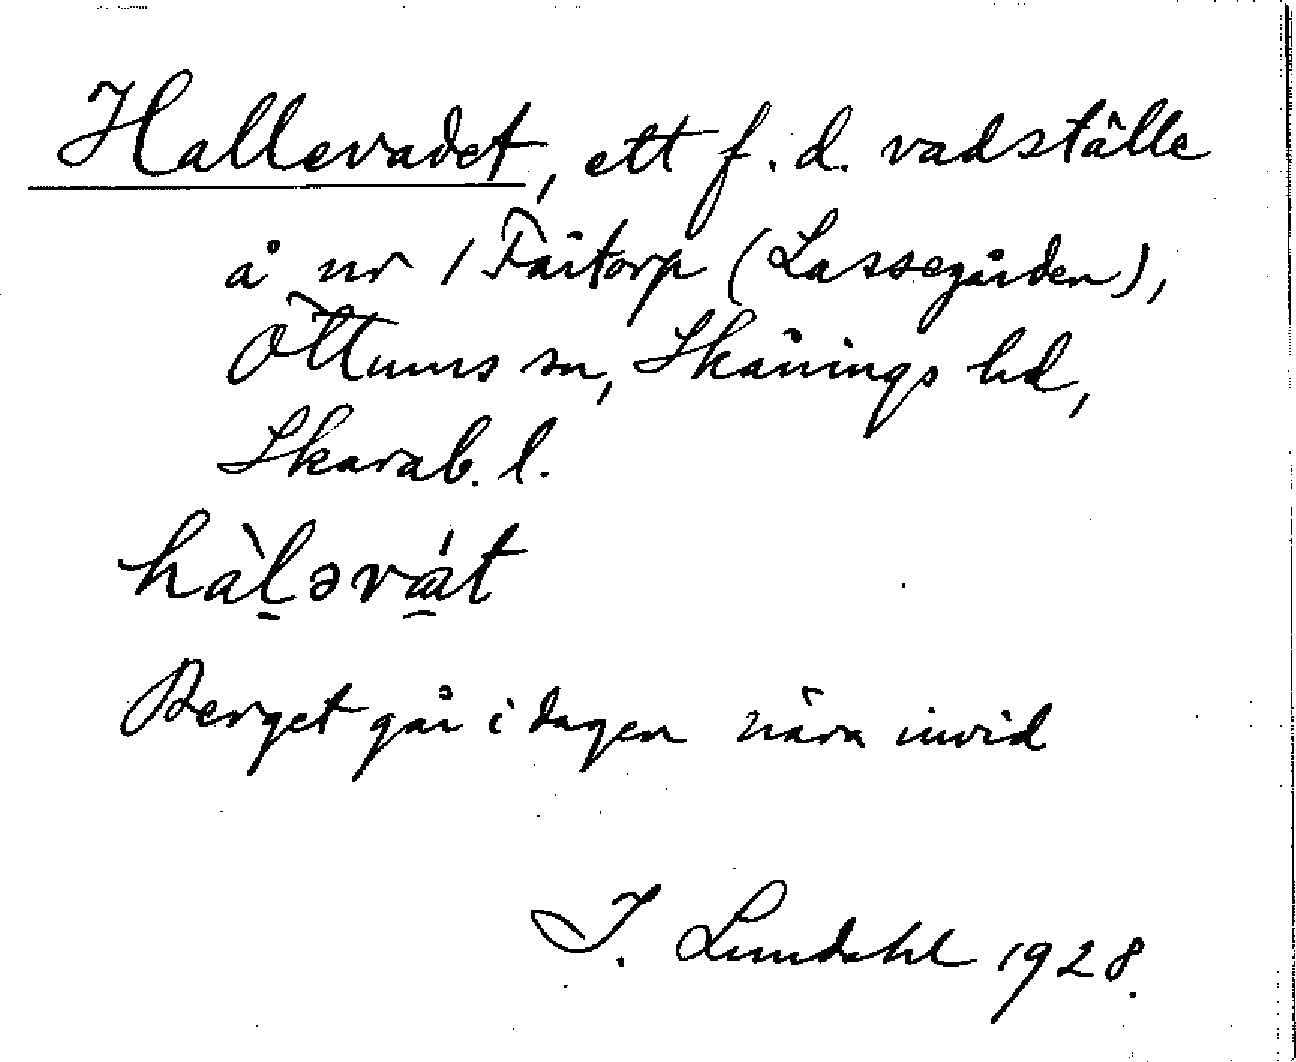 Hallevadet, ett f. d. vadställe
å nr 1 Fåitorp (Lassegården),
Öttums sn, Skånings hd,
Skarab. l.
hàl̠əvá̠t
Berget går i dagen nära invid
I. Lundahl 1928.